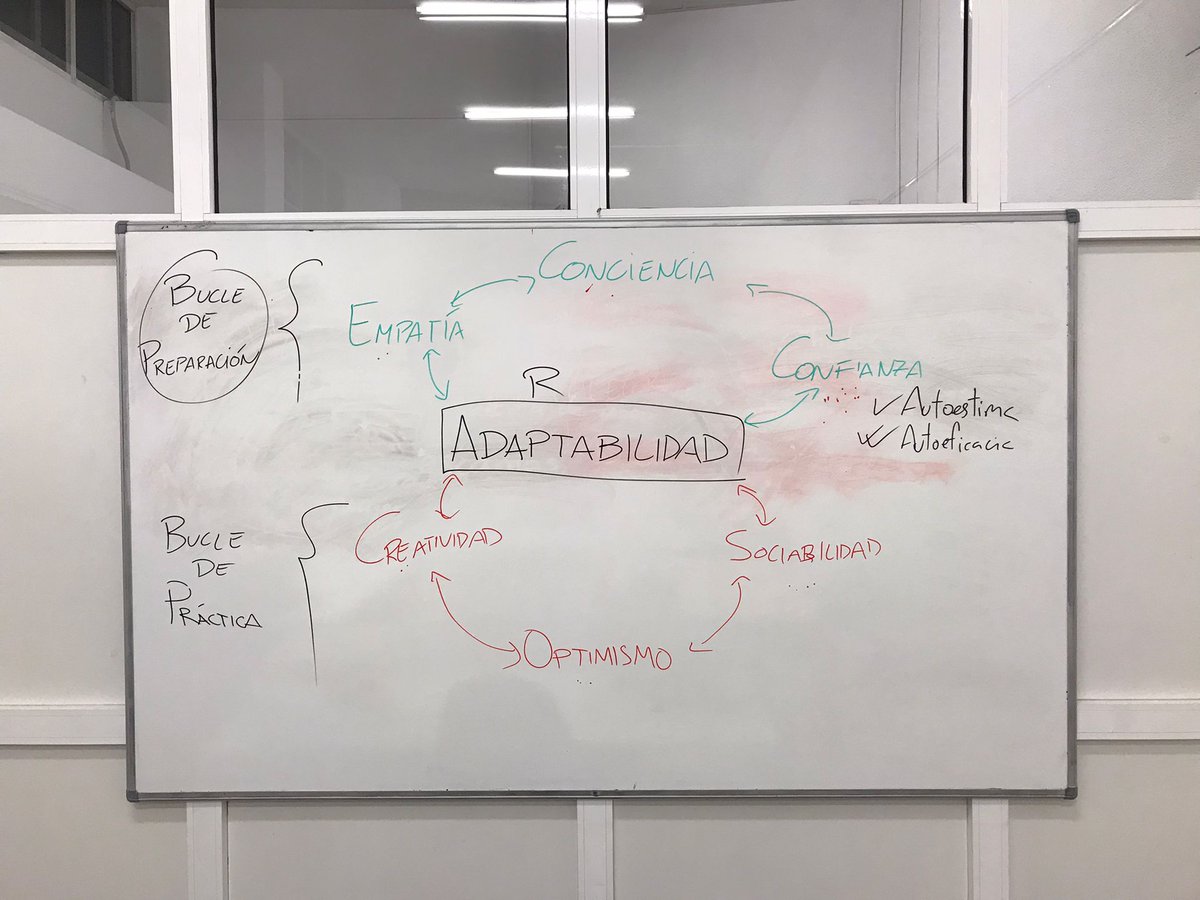 BUCLE
DE
PREPARACIÓN
CONCIENCIA
EMPATÍA
CONFIANZA
✓ Autoestima
✓ Autoeficacia
R
ADAPTABILIDAD
BUCLE
DE
PRÁCTICA
CREATIVIDAD
SOCIABILIDAD
OPTIMISMO